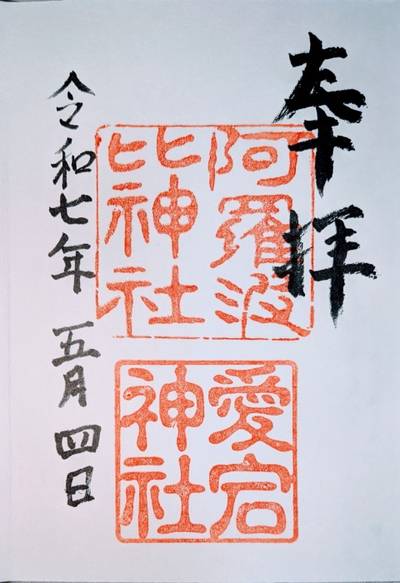 奉拝
阿羅波
比神社
愛宕
神社
令和七年 五月四日